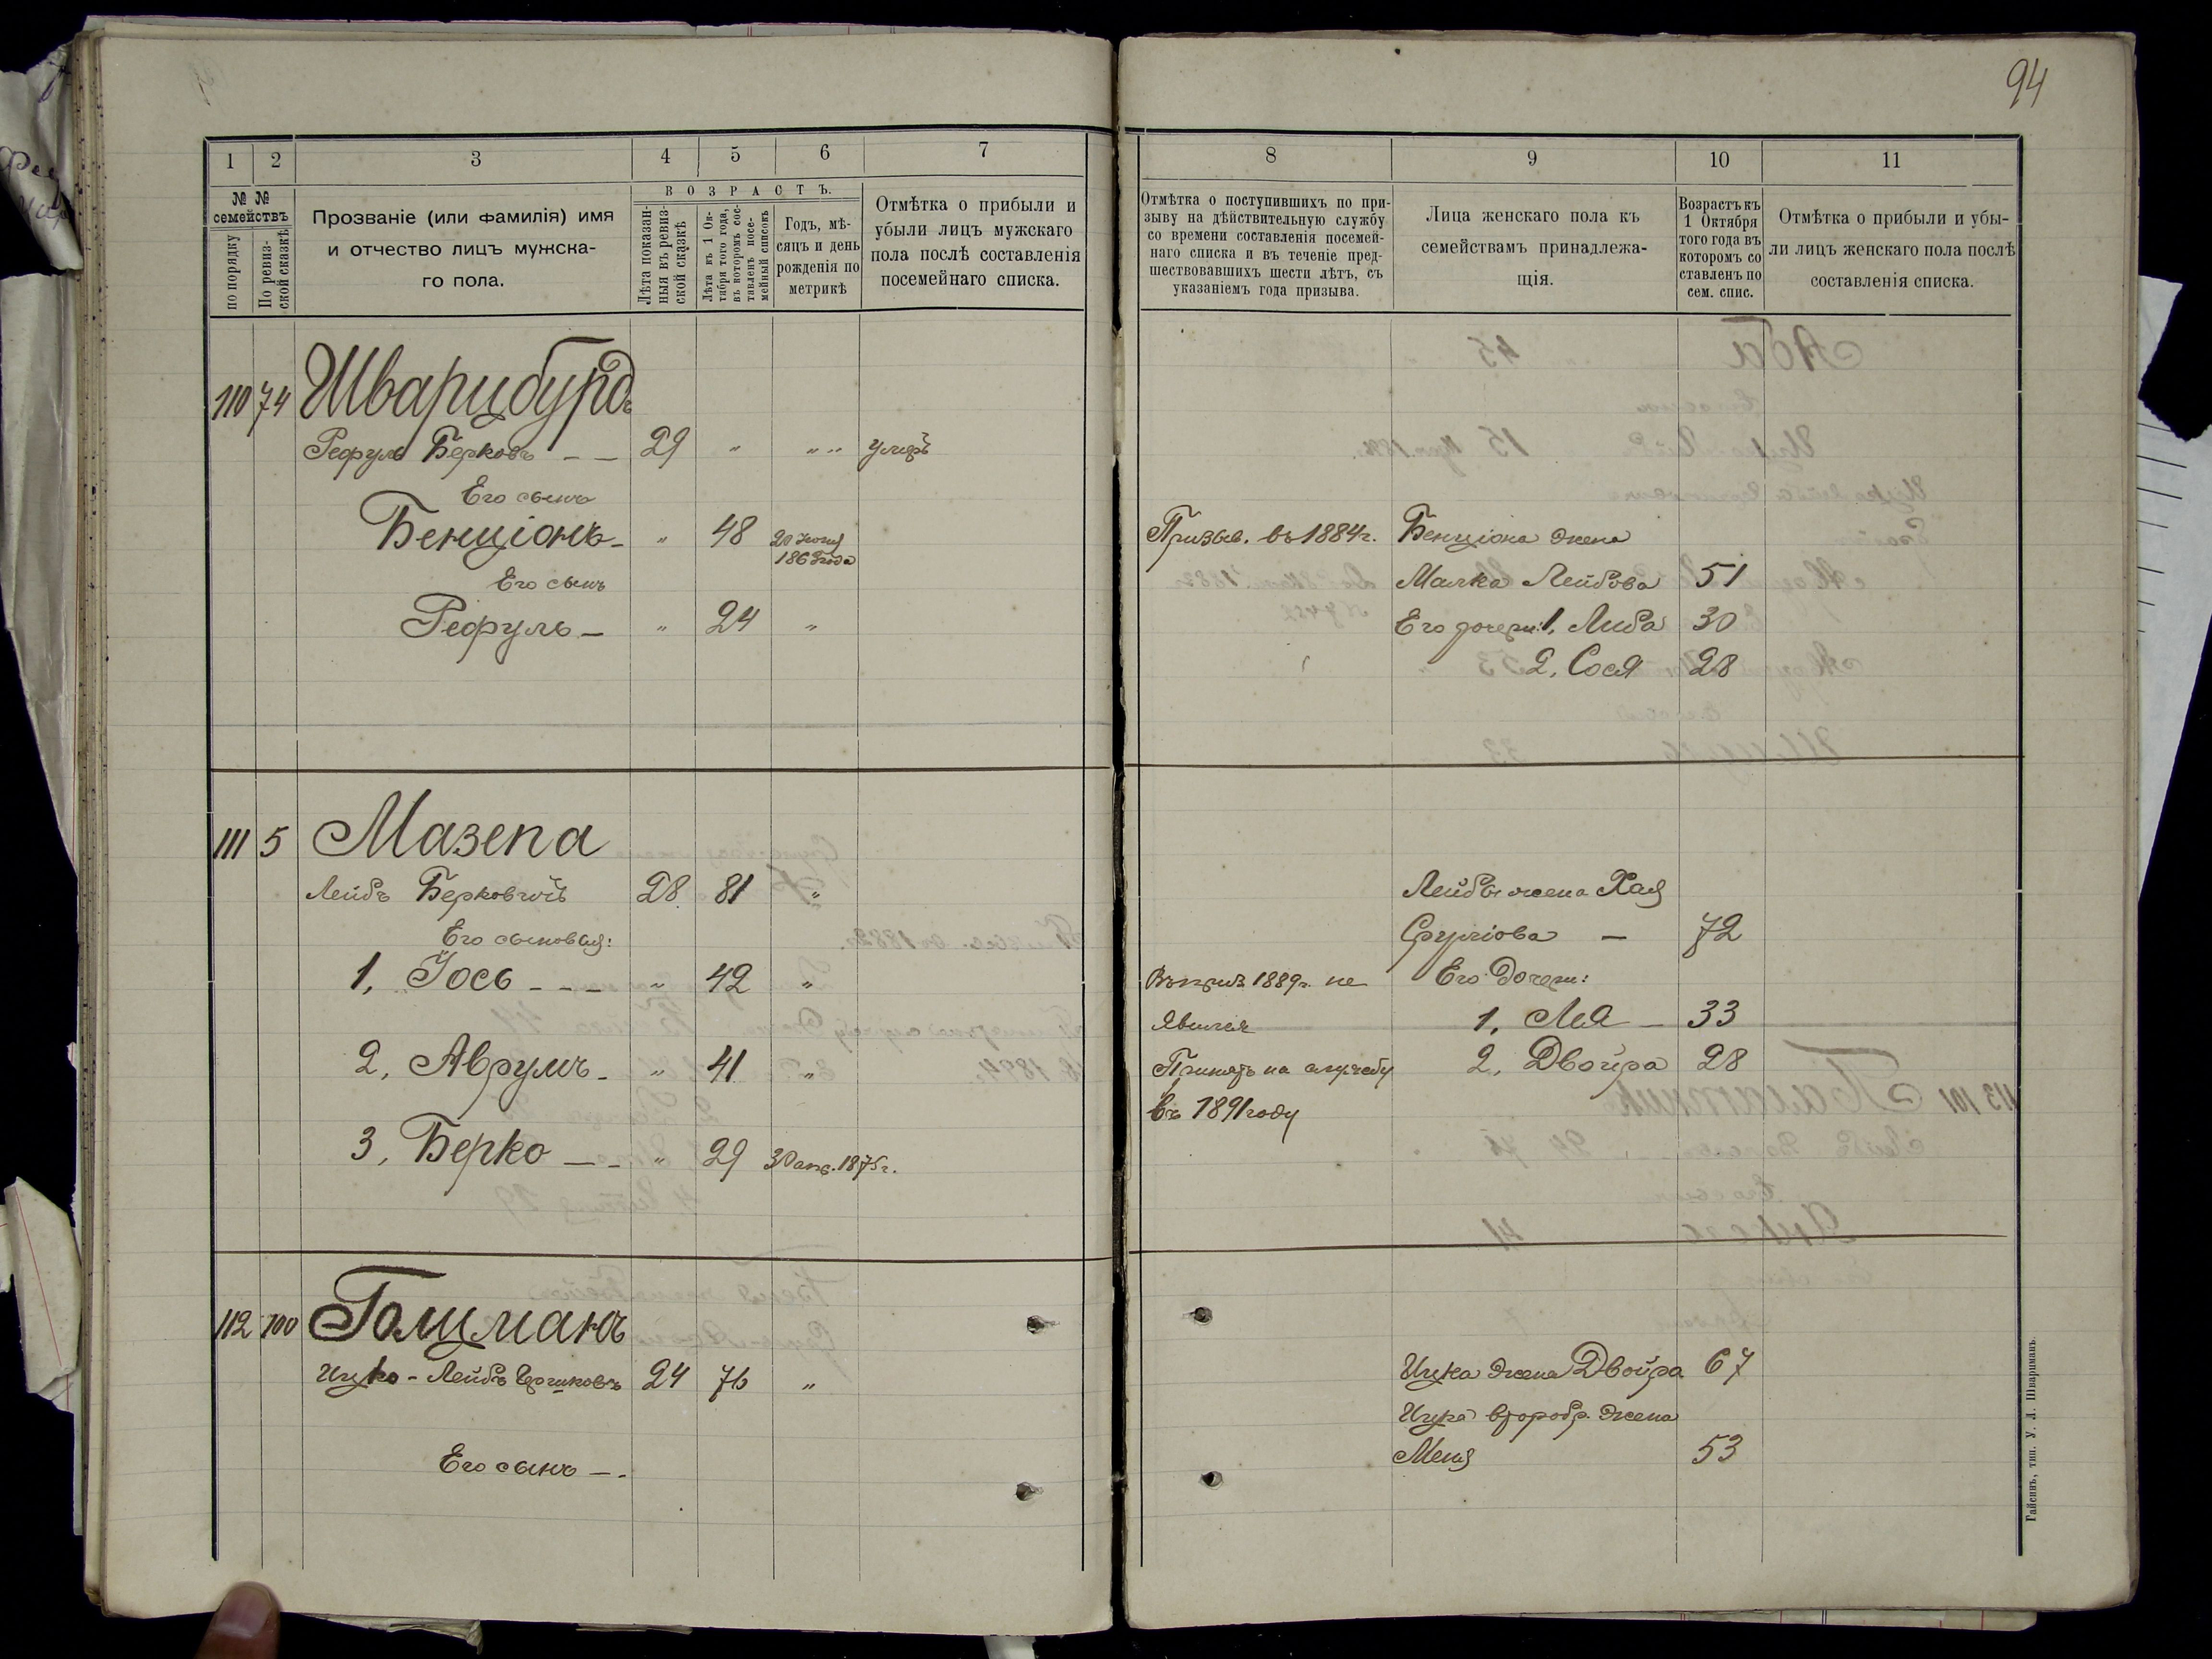 94
1 2 3 4 5 6 7
№ № семействъ
по порядку
По ревизской сказкѣ
Прозваніе (или фамилія) имя
и отчество лицъ мужска-
го пола.
ВОЗРАСТЪ.
Лѣта показан-
ныя въ ревиз-
ской сказкѣ
Лѣта къ 1 Ок-
тября того года,
въ которомъ сос-
тавленъ посе-
мейный списокъ
Годъ, мѣ-
сяцъ и день
рожденія по
метрикѣ
Отмѣтка о прибыли и
убыли лицъ мужскаго
пола послѣ составленія
посемейнаго списка.
8 9 10 11
Отмѣтка о поступившихъ по при-
зыву на дѣйствительную службу
со времени составленія посемей-
наго списка и въ теченіе пред-
шествовавшихъ шести лѣтъ, съ
указаніемъ года призыва.
Лица женскаго пола къ
семействамъ принадлежа-
щія.
Возрастъ къ
1 Октября
того года въ
которомъ со
ставленъ по
сем. спис.
Отмѣтка о прибыли и убы-
ли лицъ женскаго пола послѣ
составленія списка.
110 74 Шварцбурдъ
Рефуль Берковъ — — 29 " " " умеръ
Его сынъ
Бенціонъ - " 48 20 Іюня 1862 года
Его сынъ
Рефуль - " 24 "
Призыв. въ 1884 г. Бенціона жена
Малка Лейбова 51
Его дочери: 1, Либа 30
2, Сося 28
111 5 Мазепа
Лейбъ Берковичъ 28 81 "
Его сыновья:
1, Іось - - - " 42 "
2, Аврумъ - " 41 "
3, Берко — - " 29 30 апр. 1875 г.
Лейбы жена Хая
Сруліова — 72
Въ приз 1889 г. не Его Дочери:
явился 1, Лея — 33
Принятъ на службу 2, Двойра 28
въ 1891 году
112 100 Голцманъ
Ицко - Лейбъ 24 76 "
Его сынъ — -
Ицка жена Двойра 67
Ицка второбр. жена
Меня 53
Гайсинъ, тип. У. Л. Шварцманъ.